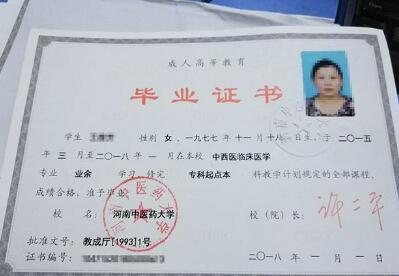 成人高等教育
毕业证书
学生 王 性别 女，一九七七年 十一月 十八日生，于 二〇一五
年 三 月至 二〇一八 年 一 月在本校 中西医临床医学
专业 业余 学习，修完 专科起点本 科教学计划规定的全部课程，
成绩合格，准予毕业。
校 名： 河南中医药大学 校（院）长： 许二平
河南中医药大学
批准文号： 教成厅[1993]1号
证书编号： 二〇一八 年 一 月 一 日